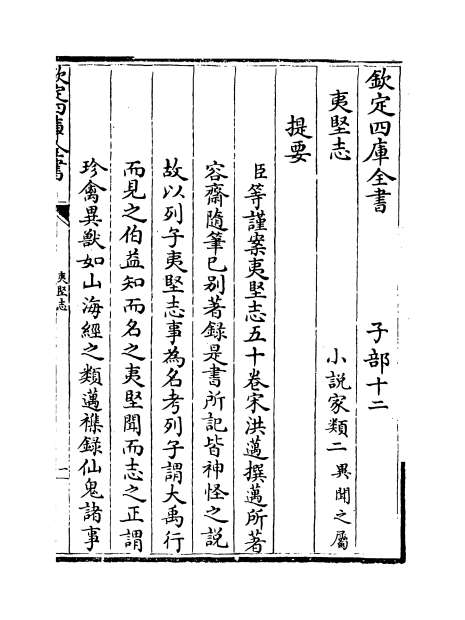 欽定四庫全書　　　子部十二
夷堅志　　　小說家類二異聞之屬
提要
臣等謹案夷堅志五十卷宋洪邁撰邁所著
容齋隨筆已別著録是書所記皆神怪之說
故以列子夷堅志事為名考列子謂大禹行
而見之伯益知而名之夷堅聞而志之正謂
珍禽異獸如山海經之類邁襍録仙鬼諸事
欽定四庫全書
夷堅志
一